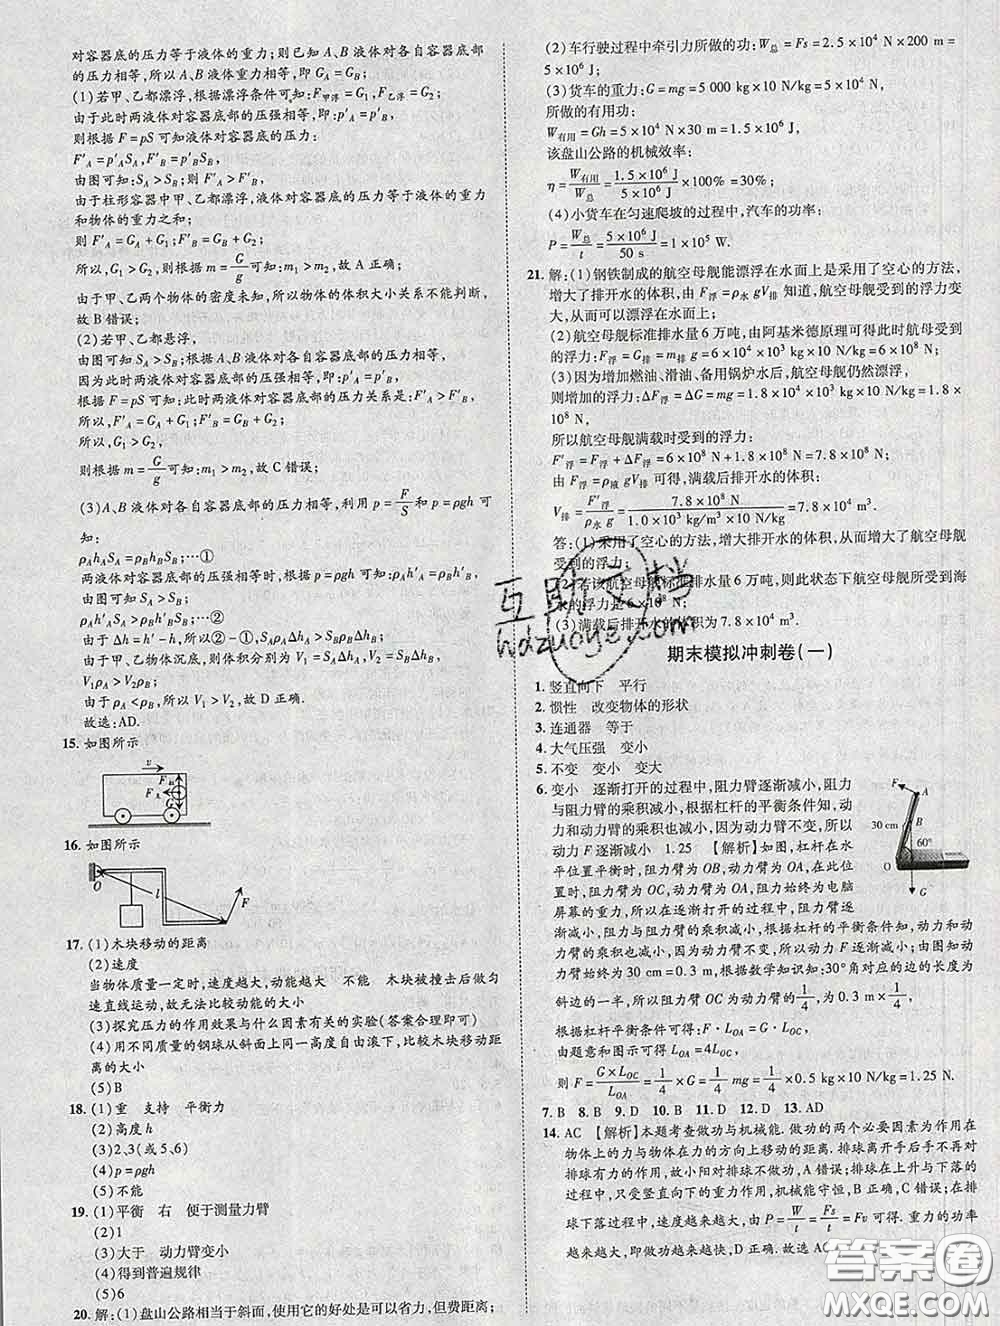 对容器底的压力等于液体的重力;则已知A、B液体对各自容器底部
的压力相等,所以A、B液体重力相等,即G_A=G_B。
(1)若甲、乙都漂浮,根据漂浮条件可知:F_甲浮=G_1,F_乙浮=G_2,
由于此时两液体对容器底部的压强相等,即:p'_A=p'_B,
则根据F=pS可知液体对容器底部的压力:
F'_A=p'_A S_A,F'_B=p'_B S_B,
由图可知:S_A>S_B;则:F'_A>F'_B,
由于柱形容器中甲、乙都漂浮,液体对容器底的压力等于液体的重力
和物体的重力之和;
则F'_A=G_A+G_1;F'_B=G_B+G_2,
所以,G_1>G_2,则根据m=G/g可知:m_1>m_2,故A正确;
由于甲、乙两个物体的密度未知,所以物体的体积大小关系不能判断,
故B错误;
(2)若甲、乙都悬浮,
由图可知S_A>S_B;根据A、B液体对各自容器底部的压力相等,
因为此时两液体对容器底部的压强相等,即:p'_A=p'_B,
根据F=pS可知:此时两液体对容器底部的压力关系是:F'_A>F'_B,
所以,F'_A=G_A+G_1;F'_B=G_B+G_2,
所以,G_1>G_2,
则根据m=G/g可知:m_1>m_2,故C错误;
(3)A、B液体对各自容器底部的压力相等,利用p=F/S和p=ρgh可
知:
ρ_A h_A S_A=ρ_B h_B S_B;…①
两液体对容器底部的压强相等,根据p=ρgh可知:ρ_A h'_A=ρ_B h'_B,
因为S_A>S_B;所以,ρ_A h'_A S_A>ρ_B h'_B S_B;…②
由于Δh=h'-h,所以②-①,S_A ρ_A Δh_A>S_B ρ_B Δh_B,
由于甲、乙物体沉底,则体积分别为V_1=S_A Δh_A,V_2=S_B Δh_B,
V_1ρ_A>V_2ρ_B;
由于ρ_A<ρ_B,所以,V_1>V_2,故D正确.
故选:AD.
15. 如图所示
v
F
F
G
16. 如图所示
O
l
F
17. (1)木块移动的距离
(2)速度
当物体质量一定时,速度越大,动能越大 不能 木块被撞击后做匀
速直线运动,故无法比较动能的大小
(3)探究压力的作用效果与什么因素有关的实验(答案合理即可)
(4)用不同质量的钢球从斜面上同一高度自由滚下,比较木块移动距
离的大小
(5)B
18. (1)重 支持 平衡力
(2)高度h
(3)2、3(或5、6)
(4)p=ρgh
(5)不能
19. (1)平衡 右 便于测量力臂
(2)1
(3)大于 动力臂变小
(4)得到普遍规律
(5)6
20. 解:(1)盘山公路相当于斜面,使用它的好处是可以省力,但费距离;
(2)车行驶过程中牵引力所做的功:W_总=Fs=2.5×10⁴ N×200 m=
5×10⁶ J;
(3)货车的重力:G=mg=5×10³ kg×10 N/kg=5×10⁴ N,
所做的有用功:
W_有用=Gh=5×10⁴ N×30 m=1.5×10⁶ J,
该盘山公路的机械效率:
η=W_有用/W_总=1.5×10⁶ J/5×10⁶ J×100%=30%;
(4)小货车在匀速爬坡的过程中,汽车的功率:
P=W_总/t=5×10⁶ J/50 s=1×10⁵ W.
21. 解:(1)钢铁制成的航空母舰能漂浮在水面上是采用了空心的方法,
增大了排开水的体积,由F_浮=ρ_水gV_排知道,航空母舰受到的浮力变
大,从而可以漂浮在水面上;
(2)航空母舰标准排水量6万吨,由阿基米德原理可得此时航母受到
的浮力:F_浮=G_排=m_排g=6×10⁴×10³ kg×10 N/kg=6×10⁸ N;
(3)因为增加燃油、滑油、备用锅炉水后,航空母舰仍然漂浮,
则增加的浮力:ΔF_浮=ΔG=mg=1.8×10⁴×10³ kg×10 N/kg=1.8×
10⁸ N,
所以航空母舰满载时受到的浮力:
F'_浮=F_浮+ΔF_浮=6×10⁸ N+1.8×10⁸ N=7.8×10⁸ N,
由F_浮=ρ_液gV_排可得,满载后排开水的体积:
V_排=F'_浮/ρ_水g=7.8×10⁸ N/1.0×10³ kg/m³×10 N/kg=7.8×10⁴ m³.
答:(1)采用了空心的方法,增大排开水的体积,从而增大航空母舰
受到的浮力;
(2)若该航空母舰标准排水量6万吨,则此状态下航空母舰所受到海
水的浮力是6×10⁸ N;
(3)满载后排开水的体积为7.8×10⁴ m³.
期末模拟冲刺卷(一)
1. 竖直向下 平行
2. 惯性 改变物体的形状
3. 连通器 等于
4. 大气压强 变小
5. 不变 变小 变大
6. 变小 逐渐打开的过程中,阻力臂逐渐减小,阻力
与阻力臂的乘积减小,根据杠杆的平衡条件知,动
力和动力臂的乘积也减小,因为动力臂不变,所以动
力F逐渐减小 1.25 【解析】如图,杠杆在水
平位置平衡时,阻力臂为OB,动力臂为OA,在此位
置时,阻力臂为OC,动力臂为OA,阻力始终为电脑
屏幕的重力,所以在逐渐打开的过程中,阻力臂逐
渐减小,阻力与阻力臂的乘积减小,根据杠杆的平衡条件知,动力和动
力臂的乘积也减小,因为动力臂不变,所以动力F逐渐减小;由图知动
力臂为30 cm=0.3 m,根据数学知识知:30°角对应的边的长度为
斜边的一半,所以阻力臂OC为动力臂的1/4,为0.3 m×1/4,
根据杠杆平衡条件可得:F·L_OA=G·L_OC,
由题意和图示可得L_OA=4L_OC,
则F=G×L_OC/L_OA=1/4G=1/4mg=1/4×0.5 kg×10 N/kg=1.25 N.
F
A
30 cm
B
60°
O
C
G
7. B 8. B 9. D 10. B 11. D 12. D 13. AD
14. AC 【解析】本题考查做功与机械能. 做功的两个必要因素为作用在
物体上的力与物体在力的方向上移动的距离. 排球离开手后手不对
排球有力的作用,故小阳对排球不做功,A错误;排球在上升与下落的
过程中,只受竖直向下的重力作用,机械能守恒,B正确,C错误;在排
球下落过程中,速度越来越大,由P=W/t=Fs/t=Fv可得,重力的功率
越来越大,即重力做功越来越快,D正确. 故选AC.
互助文档
hdzuoye.com
答案圈
MXQE.COM